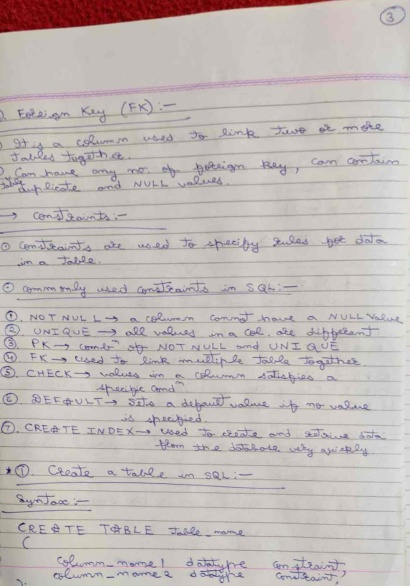 3
Foreign Key (FK) :-
It is a column used to link two or more
tables together.
Can have any no. of foreign key, can contain
duplicate and NULL values.
→ Constraints :-
Constraints are used to specify rules for data
in a table.
commonly used constraints in SQL :-
①. NOT NULL → a column cannot have a NULL Value
② UNIQUE → all values in a col. are different
③ PK → combⁿ of NOT NULL and UNIQUE
④ FK → used to link multiple table together
⑤. CHECK → values in a column satisfies a
specific condⁿ
⑥. DEFAULT → Sets a default value if no value
is specified.
⑦. CREATE INDEX → used to create and retrive data
from the database very quickly
* ①. Create a table in SQL :-
Syntax :-
CREATE TABLE table_name
(
column_name1 datatype constraint,
column_name2 datatype constraint,
);